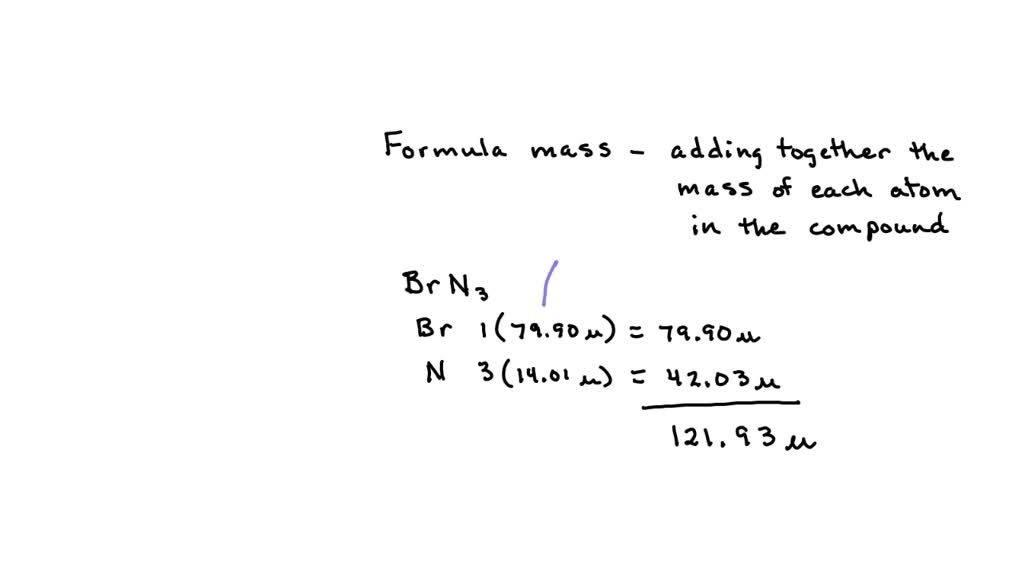 Formula mass - adding together the
mass of each atom
in the compound
BrN₃
Br 1(79.90 u) = 79.90 u
N 3(14.01 u) = 42.03 u
121.93 u